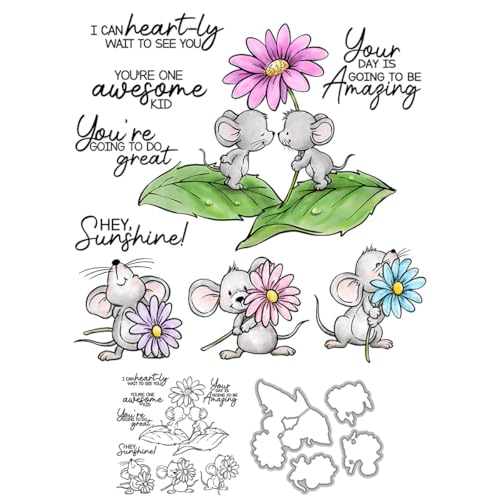 I CAN heart-ly
WAIT TO SEE YOU
YOU'RE ONE
awesome
KID
Your
DAY IS
GOING TO BE
Amazing
You're
GOING TO DO
great
HEY,
Sunshine!
I CAN heart-ly
WAIT TO SEE YOU
YOU'RE ONE
awesome
KID
Your
DAY IS
GOING TO BE
Amazing
You're
GOING TO DO
great
HEY,
Sunshine!